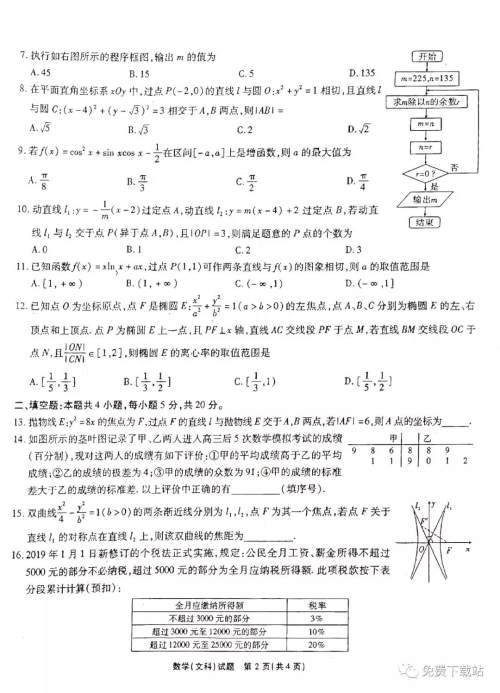 7. 执行如右图所示的程序框图,输出 m 的值为
A. 45 B. 15 C. 5 D. 135
8. 在平面直角坐标系 xOy 中,过点 P(-2,0)的直线 l 与圆 O:x²+y²=1 相切,且直线 l
与圆 C:(x-4)²+(y-√3)²=3 相交于 A,B 两点,则|AB|=
A. √5 B. √3 C. 2 D. √2
9. 若 f(x)=cos²x+sin xcos x-1/2 在区间[-a,a]上是增函数,则 a 的最大值为
A. π/8 B. π/3 C. π/2 D. π/4
开始
m=225,n=135
求m除以n的余数r
m=n
n=r
r=0?
否
是
输出m
结束
10. 动直线 l₁:y=-1/m(x-2)过定点 A,动直线 l₂:y=m(x-4)+2 过定点 B,若动直
线 l₁ 与 l₂ 交于点 P(异于点 A,B),且|OP|=3,则满足题意的 P 点的个数为
A. 0 B. 1 C. 2 D. 3
11. 已知函数 f(x)=xln x+ax,过点 P(1,1)可作两条直线与 f(x)的图象相切,则 a 的取值范围是
A. [1,+∞) B. (1,+∞) C. (-∞,1) D. (-∞,1]
12. 已知点 O 为坐标原点,点 F 是椭圆 E:x²/a²+y²/b²=1(a>b>0)的左焦点,点 A、B、C 分别为椭圆 E 的左、右
顶点和上顶点. 点 P 为椭圆 E 上一点,且 PF⊥x 轴,直线 AC 交线段 PF 于点 M,若直线 BM 交线段 OC 于
点 N,且|ON|/|CN|∈[1,2],则椭圆 E 的离心率的取值范围是
A. [1/5,1/3] B. [1/3,1/2] C. [1/3,1) D. [1/5,1/2]
二、填空题:本题共 4 小题,每小题 5 分,共 20 分。
13. 抛物线 E:y²=8x 的焦点为 F,过点 F 的直线 l 与抛物线 E 交于 A,B 两点,若|AF|=6,则 A 点的坐标为______.
14. 如图所示的茎叶图记录了甲、乙两人进入高三后 5 次数学模拟考试的成绩
(百分制),现对这两人的成绩有如下评价:①甲的平均成绩高于乙的平均
成绩;②乙的成绩的极差为 4;③甲的成绩的众数为 91;④甲的成绩的标准
差大于乙的成绩的标准差. 以上评价中正确的有______(填序号).
甲 乙
9 8 6 8 8 9
1 1 9 0 1 2
15. 双曲线 x²/4-y²/b²=1(b>0)的两条渐近线分别为 l₁,l₂,点 F 为其一个焦点,若点 F 关于
直线 l₁ 的对称点在直线 l₂ 上,则该双曲线的焦距为______.
16. 2019 年 1 月 1 日新修订的个税法正式实施,规定:公民全月工资、薪金所得不超过
5000 元的部分不必纳税,超过 5000 元的部分为全月应纳税所得额. 此项税款按下表
分段累计计算(预扣):
全月应缴纳所得额 税率
不超过 3000 元的部分 3%
超过 3000 元至 12000 元的部分 10%
超过 12000 元至 25000 元的部分 20%
数学(文科)试题 第 2 页(共 4 页)
免费下载站